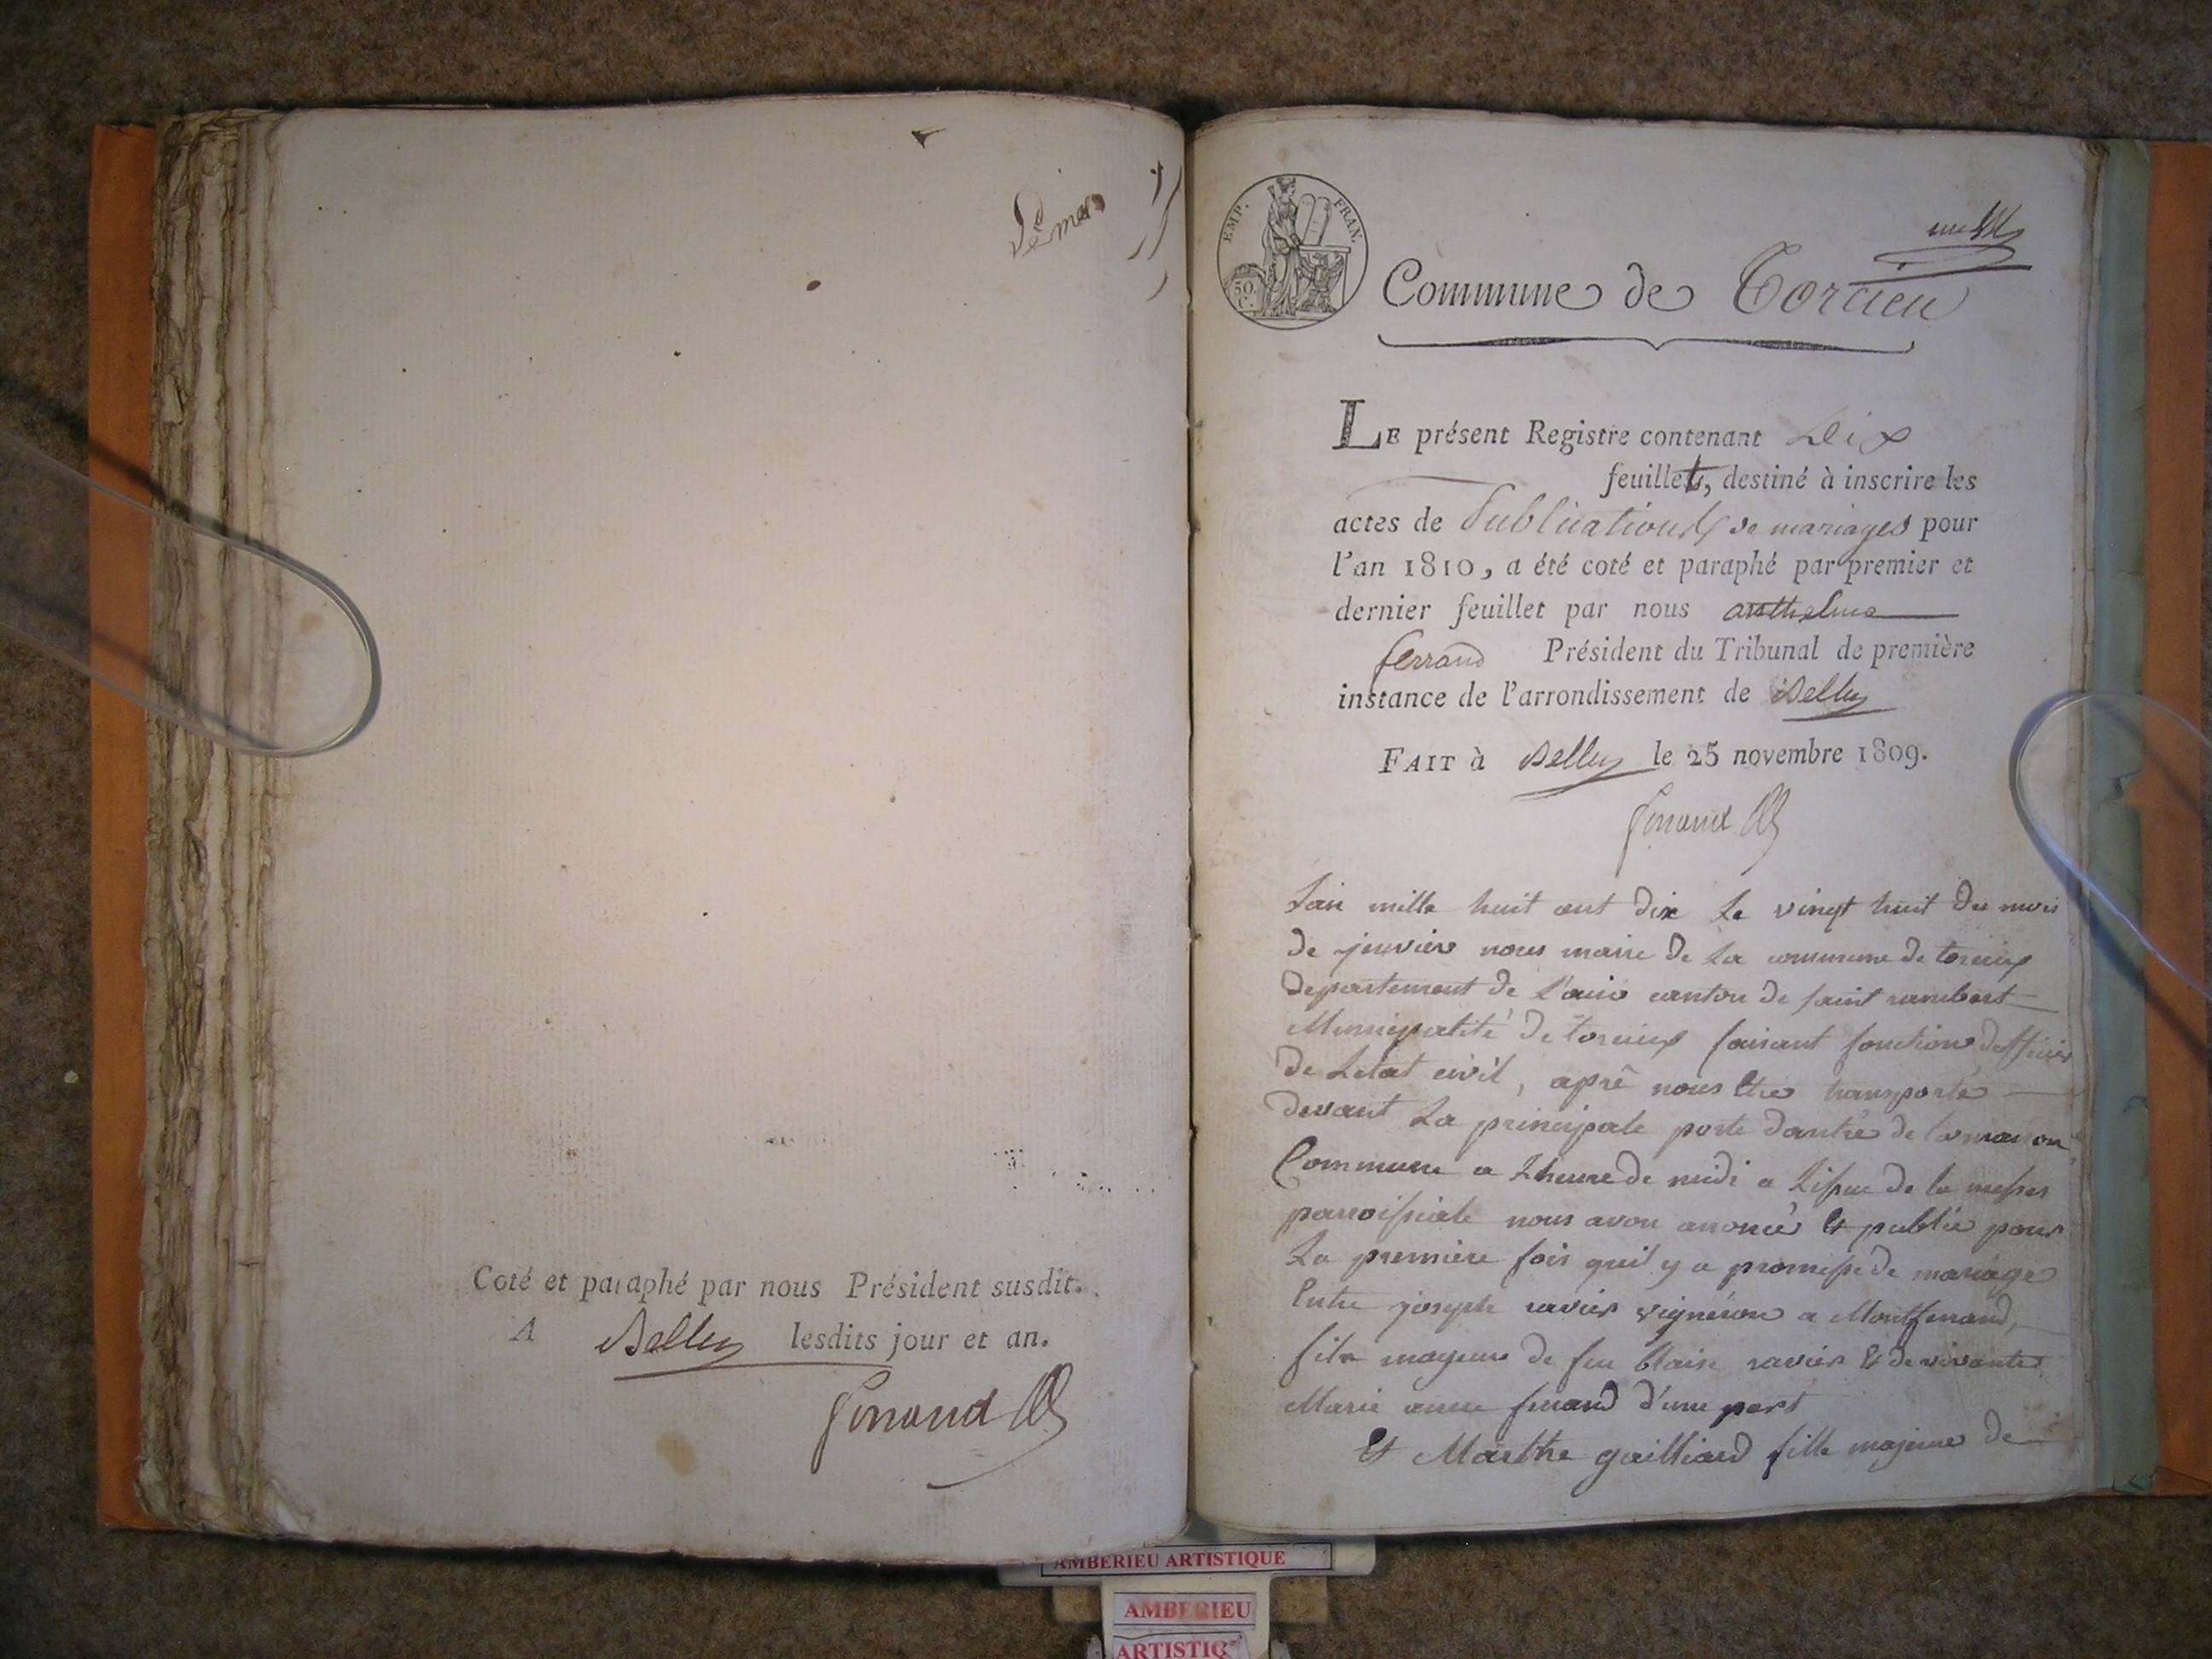 Coté et paraphé par nous Président susdit.
A Belley lesdits jour et an.
EMP. FRAN.
50. C.
Commune de Torcieu
LE présent Registre contenant Dix
feuillets, destiné à inscrire les
actes de Publications de mariages pour
l'an 1810, a été coté et paraphé par premier et
dernier feuillet par nous anthelme
ferrand Président du Tribunal de première
instance de l'arrondissement de Belley
FAIT à Belley le 25 novembre 1809.
Lan mille huit cent dix Le vingt huit du mois
de janvier nous maire de La commune de torcieux
Departement de L'ain canton de saint rambert
Municipalité de torcieux faisant fonction dofficier
de Letat civil, aprê nous Etre transporté
devant La principale porte dantré de la maison
Commune a Lheure de midi a Lissue de la messes
parroissiale nous avon anoncé Et publié pour
La premiere fois quil y a promesse de mariage
Entre joseph ravier vigneron a Montferrand,
fils mageur de feu blaise ravier Et de vivante
Marie anne ferrand d'une part
Et Marthe gailliard fille majeure de
AMBERIEU ARTISTIQUE
AMBERIEU
ARTISTIQ